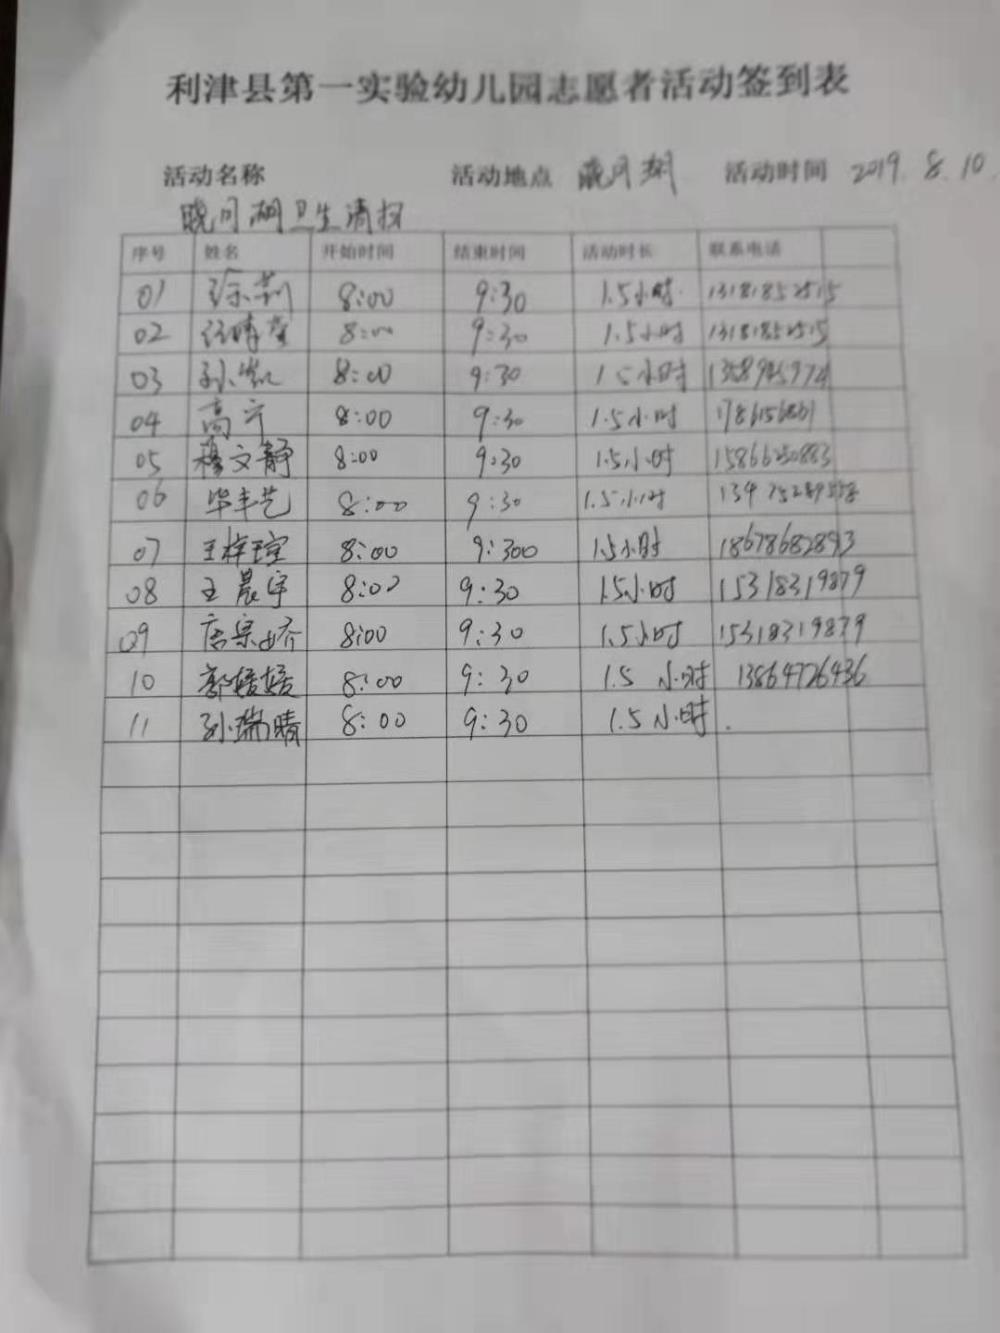 利津县第一实验幼儿园志愿者活动签到表
活动名称 活动地点 活动时间 2019.8.10.
卫生清扫
序号 姓名 开始时间 结束时间 活动时长 联系电话
01 8:00 9:30 1.5小时 13181852515
02 8:00 9:30 1.5小时 13181852515
03 8:00 9:30 1.5小时
04 高宁 8:00 9:30 1.5小时
05 穆文静 8:00 9:30 1.5小时
06 毕丰艺 8:00 9:30 1.5小时
07 王梓瑄 8:00 9:300 1.5小时 18678682893
08 王晨宇 8:00 9:30 1.5小时 15318319879
09 8:00 9:30 1.5小时 15318319879
10 郭媛媛 8:00 9:30 1.5 小时 13864726436
11 孙瑞晴 8:00 9:30 1.5小时.